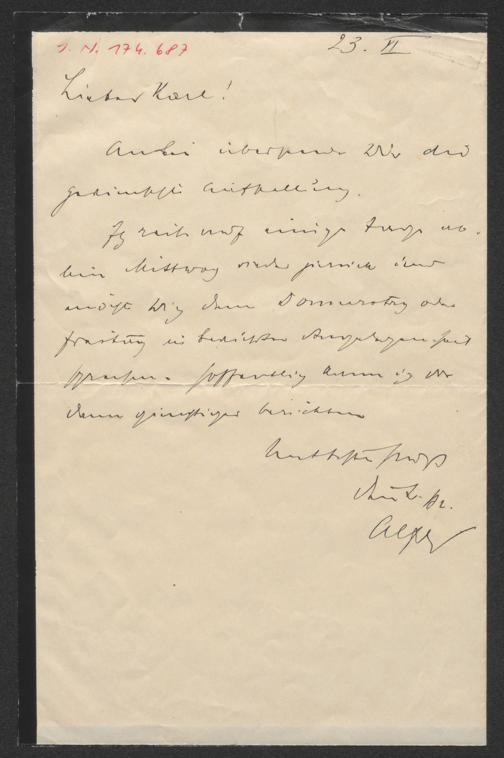 J. N. 174.687
23. VI
Lieber Karl!
Anbei übersende Dir die
gewünschte Aufstellung.
Ich reise auf einige Tage
bin Mittwoch wieder zurück und
möchte Dich dann Donnerstag oder
Freitag in Angelegenheit
sprechen. Hoffentlich kann ich Dir
dann günstiges berichten
Herzlichst grüßt
Dein